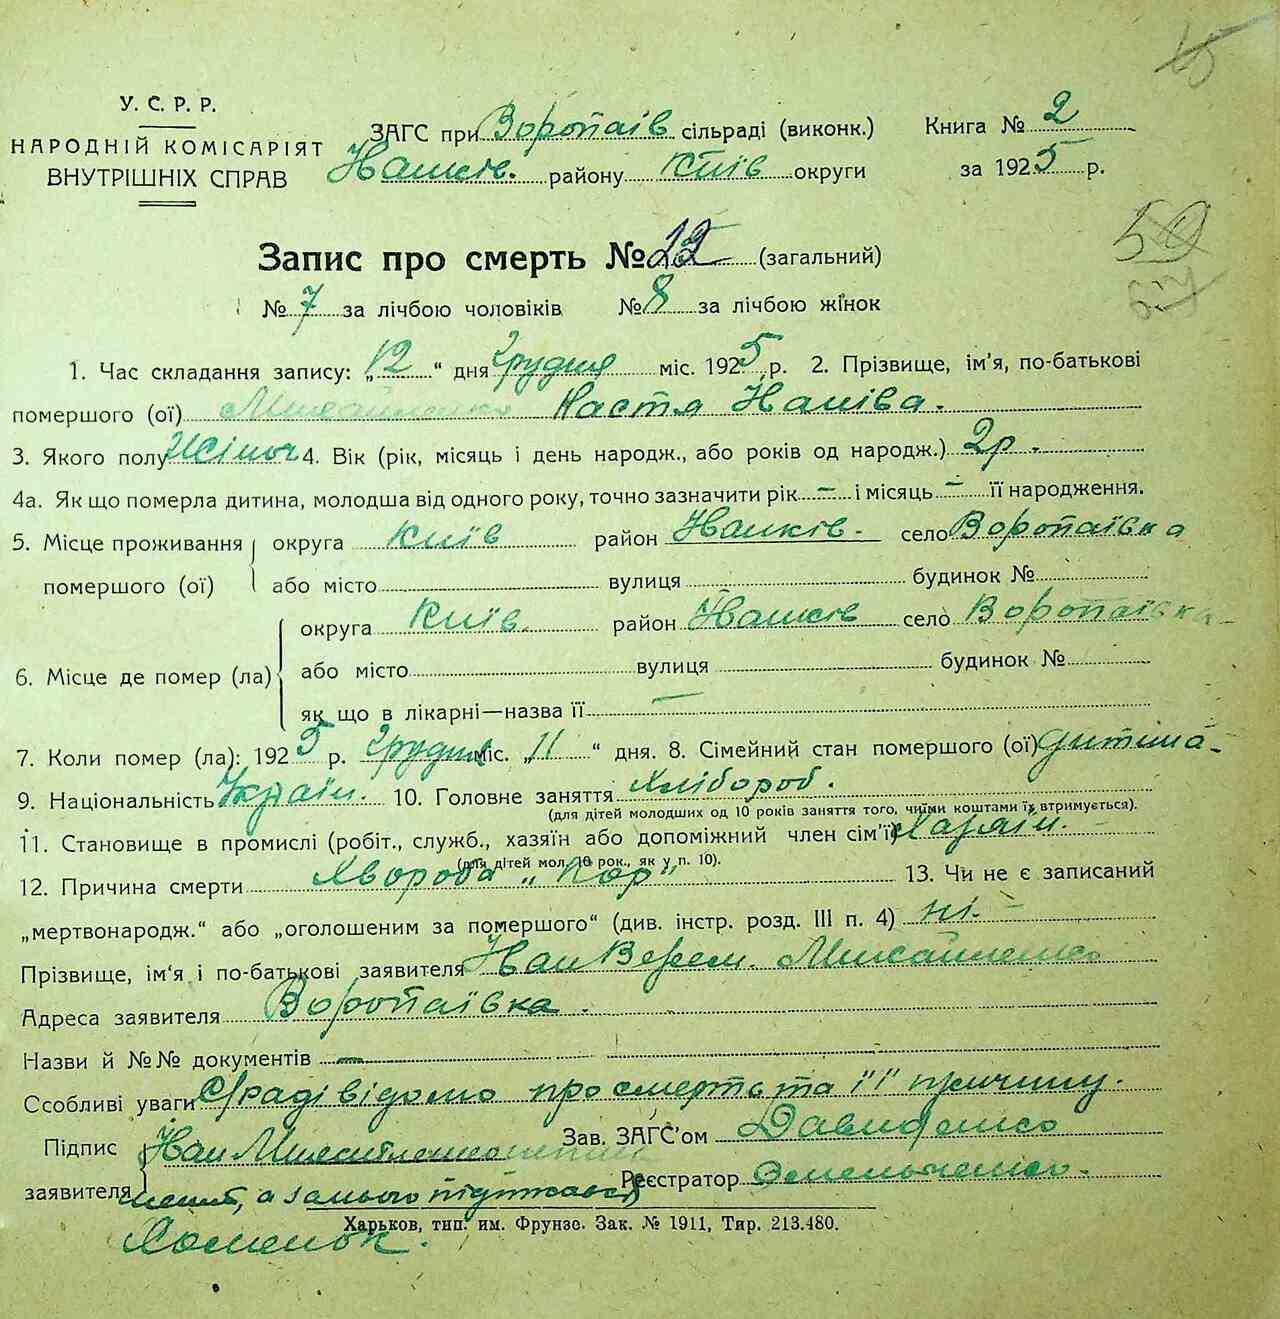 У. С. Р. Р.
НАРОДНІЙ КОМІСАРІЯТ
ВНУТРІШНІХ СПРАВ
ЗАГС при Воропаїв сільраді (виконк.)
району Київ округи
Книга № 2
за 1925 р.
Запис про смерть № (загальний)
№ 7 за лічбою чоловіків № 8 за лічбою жінок
1. Час складання запису: „12“ дня Грудня міс. 1925 р. 2. Прізвище, ім'я, по-батькові
помершого (ої) Михайленко Настя
3. Якого полу Жіноч 4. Вік (рік, місяць і день народж., або років од народж.) 2р.
4а. Як що померла дитина, молодша від одного року, точно зазначити рік – і місяць – її народження.
5. Місце проживання помершого (ої) округа Київ район село Воропаївка
або місто вулиця будинок №
6. Місце де помер (ла) округа Київ район село Воропаївка
або місто вулиця будинок №
як що в лікарні—назва її –
7. Коли помер (ла): 1925 р. Грудня міс. „11“ дня. 8. Сімейний стан помершого (ої) дитина
9. Національність Україн. 10. Головне заняття Хлібороб.
(для дітей молодших од 10 років заняття того, чиїми коштами їх втримується).
11. Становище в промислі (робіт., служб., хазяїн або допоміжний член сім'ї) Хазяїн.
(для дітей мол. 10 рок., як у п. 10).
12. Причина смерти Хвороба „Кор“ 13. Чи не є записаний
„мертвонародж.“ або „оголошеним за помершого“ (див. інстр. розд. III п. 4) ні.
Прізвище, ім'я і по-батькові заявителя Верем. Михайленко
Адреса заявителя Воропаївка.
Назви й №№ документів –
Особливі уваги С/раді відомо про смерть та її причину.
Підпис заявителя
Зав. ЗАГС'ом Давиденко
Реєстратор Омельченко.
а за нього підписався
Хоменок.
Харьков, тип. им. Фрунзе. Зак. № 1911, Тир. 213.480.